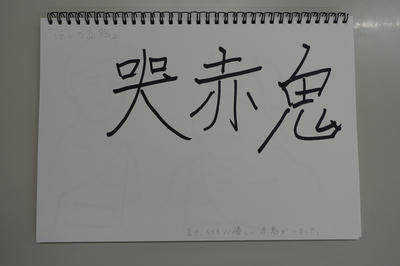 「泣いた赤鬼」
哭赤鬼